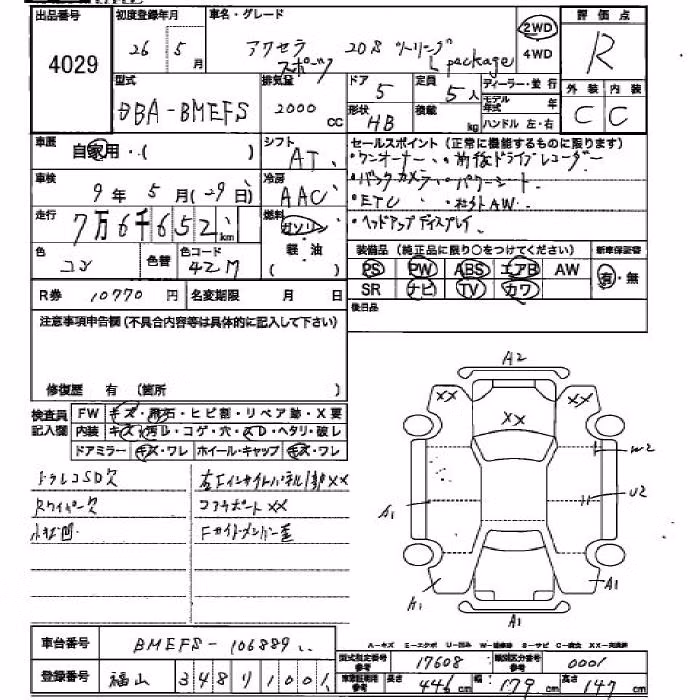 出品番号 初度登録年月 車名・グレード 評価点
4029 26年 5月 アクセラスポーツ 20S ツーリング L package 2WD 4WD R
型式 排気量 ドア 定員 ディーラー・並行 外装 内装
DBA-BMEFS 2000cc 5 5人 モデル年式 年 C C
形状 積載 kg ハンドル 左・右
HB
車歴 自家用・( ) シフト AT セールスポイント(正常に機能するものに限ります)
・ワンオーナー ・前後ドライブレコーダー
車検 9年 5月(29日) 冷房 AAC ・バックカメラ ・パワーシート
・ETC ・社外AW
走行 7万6千652km 燃料 ガソリン ・ヘッドアップディスプレイ
軽油 ( )
色 コン 色替 色コード 42M
装備品(純正品に限り○をつけてください) 新車保証書
PS PW ABS エアB AW 有・無
SR ナビ TV カワ
R券 10770円 名変期限 月 日 後日品
注意事項申告欄(不具合内容等は具体的に記入して下さい)
修復歴 有 (箇所 )
検査員記入欄 FW キズ・飛石・ヒビ割・リペア跡・X要
内装 キズ・汚レ・コゲ・穴・スレ・ヘタリ・破レ
ドアミラー キズ・ワレ ホイール・キャップ キズ・ワレ
ドラレコSD欠
Rワイパー欠 コアサポートXX
小キズ凹 Fサイドメンバー歪
A2
XX XX
XX
W2
A1 U2
A1 A1
A1
A-キズ E-エクボ U-凹み W-補修跡 S-サビ C-腐食 XX-交換済
車台番号 BMEFS-106889
型式指定番号 参考 17608 類別区分番号 参考 0001
登録番号 福山 348 リ 1001
車庫証明用 参考 長さ 446cm 幅 179cm 高さ 147cm